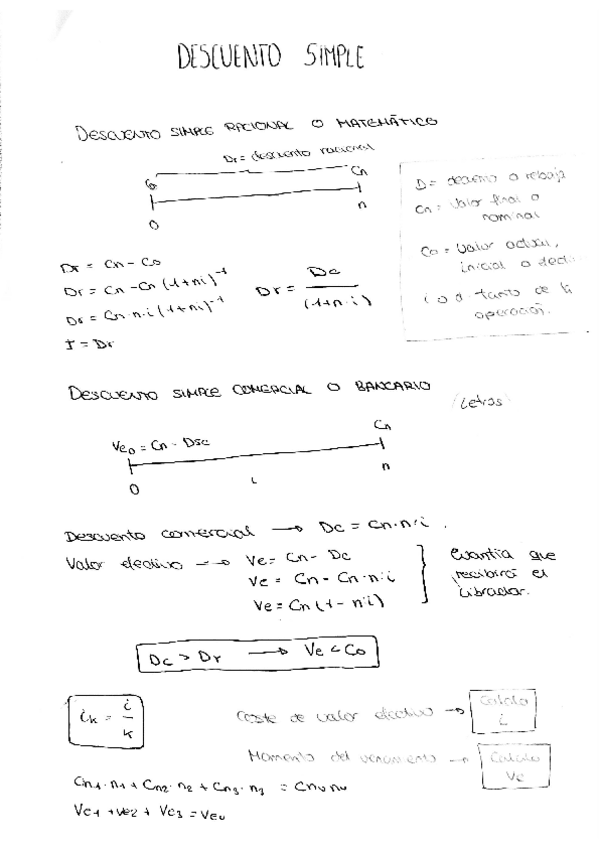 DESCUENTO SIMPLE
DESCUENTO SIMPLE RACIONAL O MATEMÁTICO
Dr = descuento racional
Co Cn
0 n
D = descuento o rebaja
Cn = Valor final o
nominal
Co = Valor actual,
inicial o
i o d = tanto de la
operación.
Dr = Cn - Co
Dr = Cn - Cn (1+ni)⁻¹
Dr = Cn·n·i (1+ni)⁻¹
I = Dr
Dr = Dc / (1+n·i)
DESCUENTO SIMPLE COMERCIAL O BANCARIO
(Letras)
Cn
Ve₀ = Cn - Dsc
0 i n
Descuento comercial → Dc = Cn·n·i.
Valor efectivo → Ve = Cn - Dc
Ve = Cn - Cn·n·i
Ve = Cn (1 - n·i)
Cuantía que
recibirá el
librador.
Dc > Dr → Ve < Co
iₖ = i / k
Coste de valor efectivo → Calculo
i
Momento del vencimiento → Calculo
Ve
Cn₁·n₁ + Cn₂·n₂ + Cn₃·n₃ = Cnᵤnᵤ
Ve₁ + Ve₂ + Ve₃ = Veᵤ